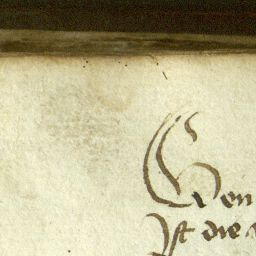 Gen
Ist die